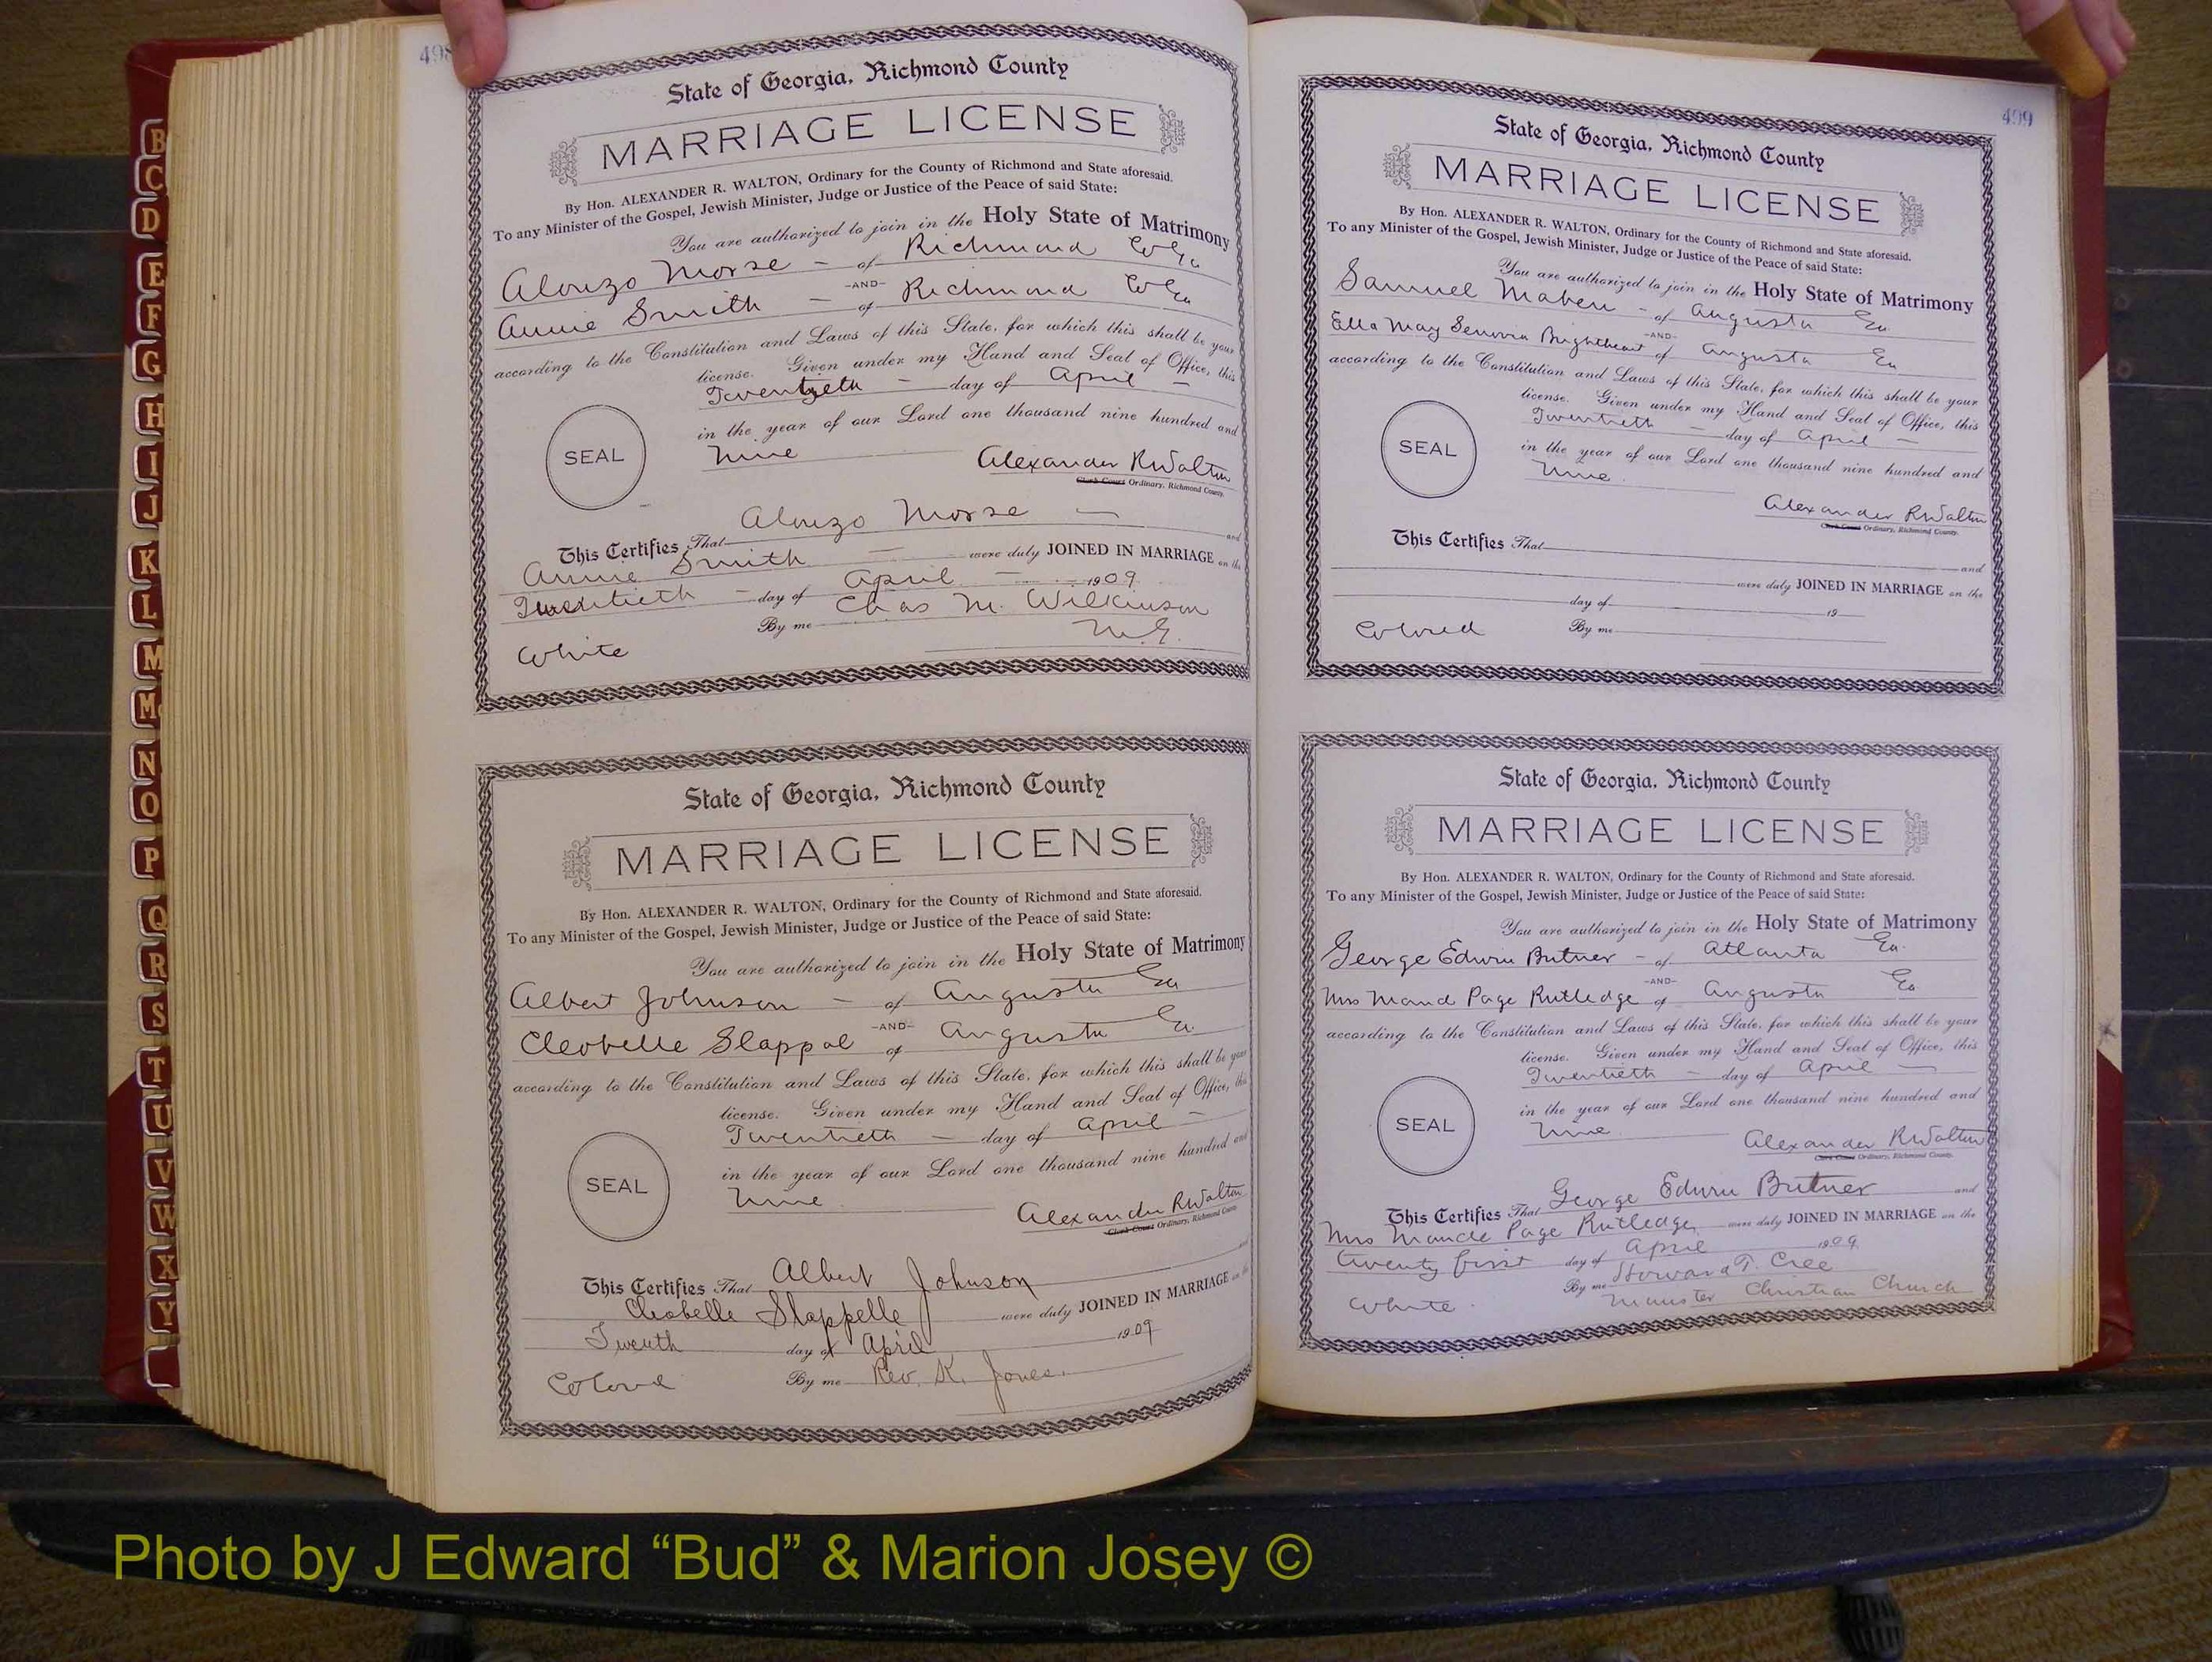 B
C
D
E
F
G
H
I
J
K
L
M
Mc
N
O
P
Q
R
S
T
U
V
W
X
Y
498
State of Georgia, Richmond County
MARRIAGE LICENSE
By Hon. ALEXANDER R. WALTON, Ordinary for the County of Richmond and State aforesaid.
To any Minister of the Gospel, Jewish Minister, Judge or Justice of the Peace of said State:
You are authorized to join in the Holy State of Matrimony
Alonzo Morse - of Richmond Co Ga
-AND-
Annie Smith - of Richmond Co Ga
according to the Constitution and Laws of this State, for which this shall be your
license. Given under my Hand and Seal of Office, this
Twentyeth - day of April -
in the year of our Lord one thousand nine hundred and
SEAL
Nine
Alexander R Walton
Clerk Court Ordinary, Richmond County.
This Certifies That Alonzo Morse - and
Annie Smith - were duly JOINED IN MARRIAGE on the
Twentieth - day of April - 1909
By me Chas M. Wilkinson
M.G.
White
State of Georgia, Richmond County
MARRIAGE LICENSE
By Hon. ALEXANDER R. WALTON, Ordinary for the County of Richmond and State aforesaid.
To any Minister of the Gospel, Jewish Minister, Judge or Justice of the Peace of said State:
You are authorized to join in the Holy State of Matrimony
Albert Johnson - of Augusta Ga
-AND-
Cleobelle Slappal of Augusta Ga
according to the Constitution and Laws of this State, for which this shall be your
license. Given under my Hand and Seal of Office, this
Twentieth - day of April -
in the year of our Lord one thousand nine hundred and
SEAL
Nine
Alexander R Walton
Clerk Court Ordinary, Richmond County
This Certifies That Albert Johnson and
Cleobelle Slappelle were duly JOINED IN MARRIAGE on the
Twenth day of April 1909
Colored By me Rev. K. Jones.
499
State of Georgia, Richmond County
MARRIAGE LICENSE
By Hon. ALEXANDER R. WALTON, Ordinary for the County of Richmond and State aforesaid.
To any Minister of the Gospel, Jewish Minister, Judge or Justice of the Peace of said State:
You are authorized to join in the Holy State of Matrimony
Samuel Maben - of Augusta Ga
-AND-
Ella May Brightheart of Augusta Ga
according to the Constitution and Laws of this State, for which this shall be your
license. Given under my Hand and Seal of Office, this
Twentieth - day of April -
in the year of our Lord one thousand nine hundred and
SEAL
Nine
Alexander R Walton
Clerk Court Ordinary, Richmond County.
This Certifies That
and
were duly JOINED IN MARRIAGE on the
day of 19
Colored By me
State of Georgia, Richmond County
MARRIAGE LICENSE
By Hon. ALEXANDER R. WALTON, Ordinary for the County of Richmond and State aforesaid.
To any Minister of the Gospel, Jewish Minister, Judge or Justice of the Peace of said State:
You are authorized to join in the Holy State of Matrimony
George Edwin Butner - of Atlanta Ga.
-AND-
Mrs Maud Page Rutledge of Augusta Ga
according to the Constitution and Laws of this State, for which this shall be your
license. Given under my Hand and Seal of Office, this
Twentieth - day of April -
in the year of our Lord one thousand nine hundred and
SEAL
Nine
Alexander R Walton
Clerk Court Ordinary, Richmond County.
This Certifies That George Edwin Butner and
Mrs Maude Page Rutledge were duly JOINED IN MARRIAGE on the
twenty first day of April 1909
By me Howard T. Cree
White Minister Christian Church
Photo by J Edward “Bud” & Marion Josey ©